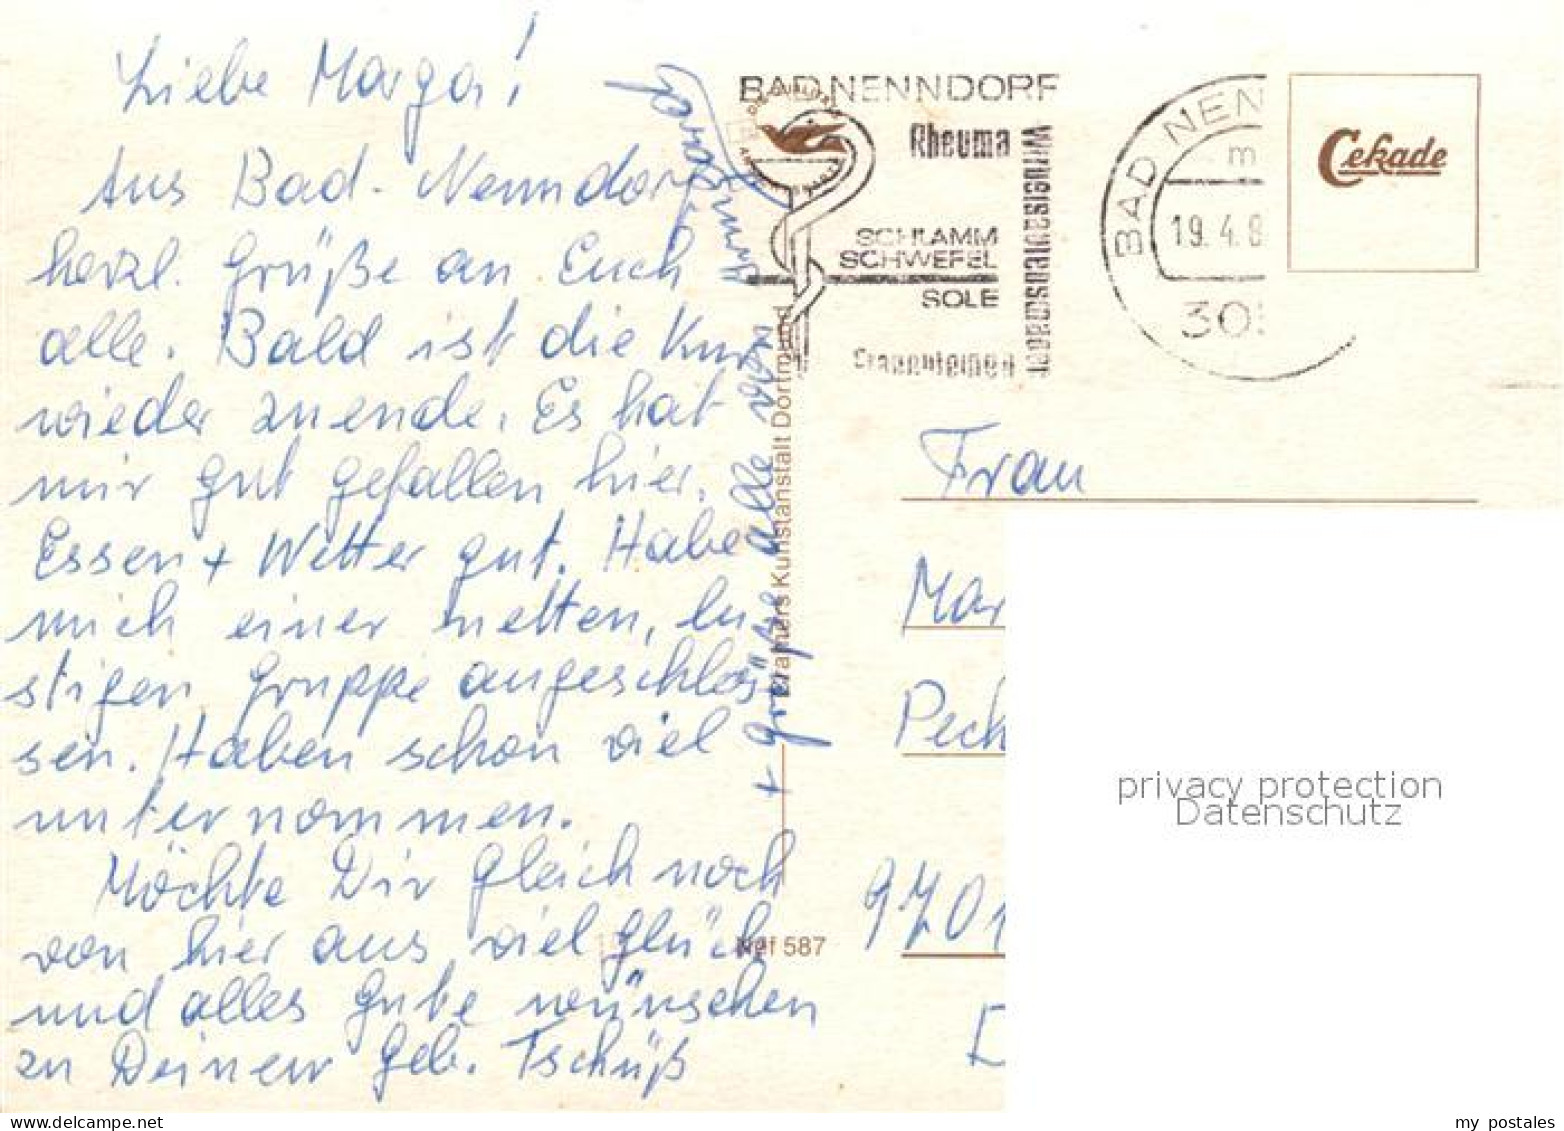 Liebe Marga!
Aus Bad-Nenndorf
herzl. Grüße an Euch
alle. Bald ist die Kur
wieder zuende. Es hat
mir gut gefallen hier.
Essen + Wetter gut. Habe
mich einer netten, lu
stigen Gruppe angeschlos
sen. Haben schon viel
unternommen.
Möchte Dir gleich noch
von hier aus viel Glück
und alles Gute wünschen
zu Deinem Geb. Tschüß
+ grüße alle von
BAD NENNDORF
Rheuma
SCHLAMM
SCHWEFEL
SOLE
Frauenleiden
Wirbelsäulenschäden
BAD NEN
m
19.4.8
305
Cekade
Cramers Kunstanstalt Dortmund
Nef 587
Frau
Mar
Pech
9701
privacy protection
Datenschutz
my postales